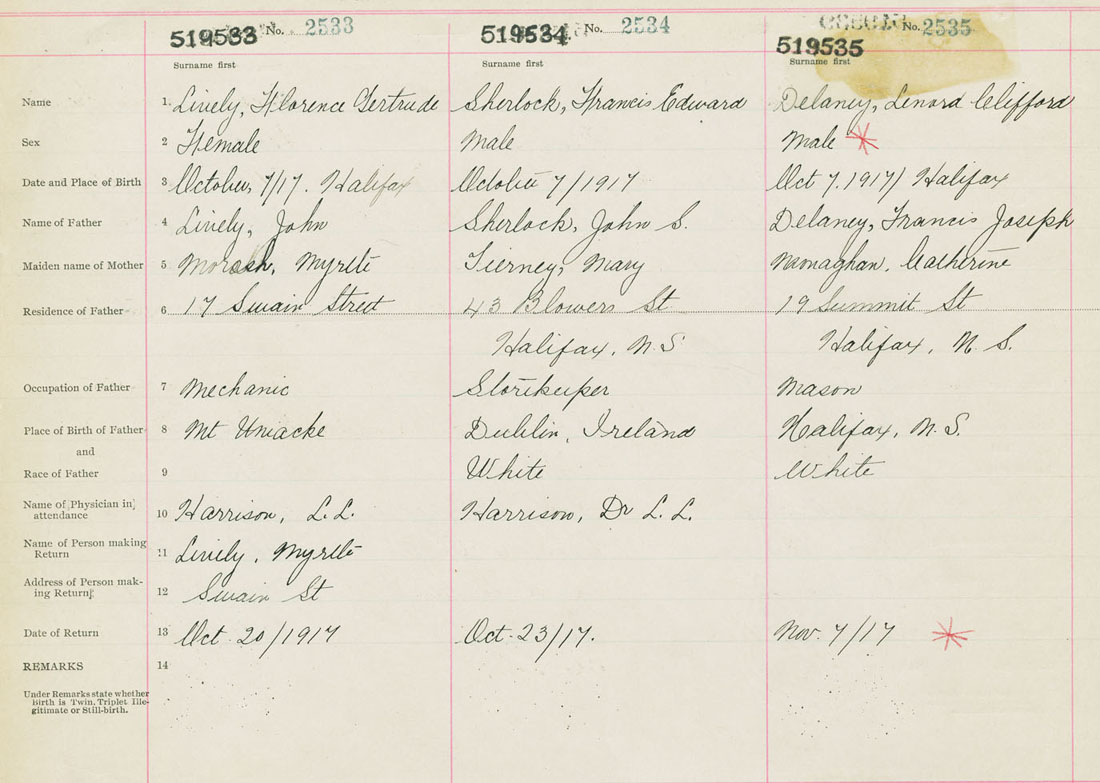 519533 No. 2533 519534 No. 2534 No. 2535
519535
Surname first Surname first Surname first
Name 1. Lively, Florence Gertrude Sherlock, Francis Edward Delaney, Lenord Clifford
Sex 2 Female Male Male
Date and Place of Birth 3 October 7/17. Halifax October 7/1917 Oct 7. 1917/ Halifax
Name of Father 4 Lively, John Sherlock, John S. Delaney, Francis Joseph
Maiden name of Mother 5 Morash, Myrtle Tierney, Mary Monaghan, Catherine
Residence of Father 6 17 Swain Street 43 Blowers St 19 Summit St
Halifax, N.S. Halifax, N.S.
Occupation of Father 7 Mechanic Storekeeper Mason
Place of Birth of Father 8 Mt Uniacke Dublin, Ireland Halifax, N.S.
and
Race of Father 9 White White
Name of Physician in
attendance 10 Harrison, L.L. Harrison, Dr L.L.
Name of Person making
Return 11 Lively, Myrtle
Address of Person mak-
ing Return 12 Swain St
Date of Return 13 Oct 20/1917 Oct. 23/17. Nov. 7/17
REMARKS 14
Under Remarks state whether
Birth is Twin, Triplet Ille-
gitimate or Still-birth.